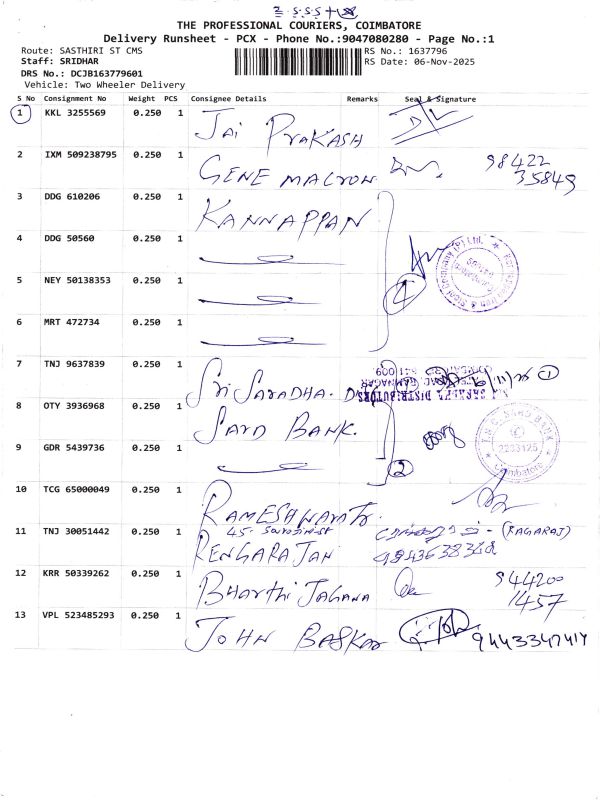 THE PROFESSIONAL COURIERS, COIMBATORE
Delivery Runsheet - PCX - Phone No.:9047080280 - Page No.:1
Route: SASTHIRI ST CMS
RS No.: 1637796
Staff: SRIDHAR
RS Date: 06-Nov-2025
DRS No.: DCJB163779601
Vehicle: Two Wheeler Delivery
S No Consignment No Weight PCS Consignee Details Remarks Seal & Signature
1 KKL 3255569 0.250 1 Jai PraKASH
2 IXM 509238795 0.250 1 GENE MALYON 98422
35849
3 DDG 610206 0.250 1 KANNAPPAN
4 DDG 50560 0.250 1
5 NEY 50138353 0.250 1
4
6 MRT 472734 0.250 1
7 TNJ 9637839 0.250 1 Sri Saradha. 1
8 OTY 3936968 0.250 1 SAYD BANK.
9 GDR 5439736 0.250 1
2
2233125
Coimbatore
10 TCG 65000049 0.250 1
11 TNJ 30051442 0.250 1 RENGARAJAN (RAGARAJ)
12 KRR 50339262 0.250 1 Bharthi Jagana 944200
1457
13 VPL 523485293 0.250 1 JOHN BASKAR